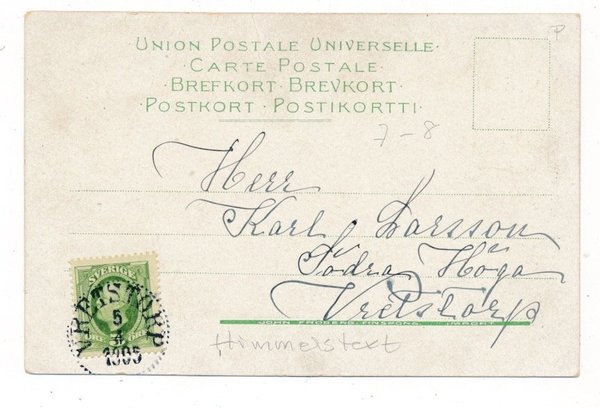 UNION POSTALE UNIVERSELLE·
·CARTE POSTALE·
·BREFKORT·BREVKORT·
·POSTKORT·POSTIKORTTI·
P
7-8
Herr
Karl Larsson
Södra Höga
Vretstorp
SVERIGE
VRETSTORP
5
4
1905
JOHN FRÖBERG, FINSPONG. IMPORT
Himmelstext